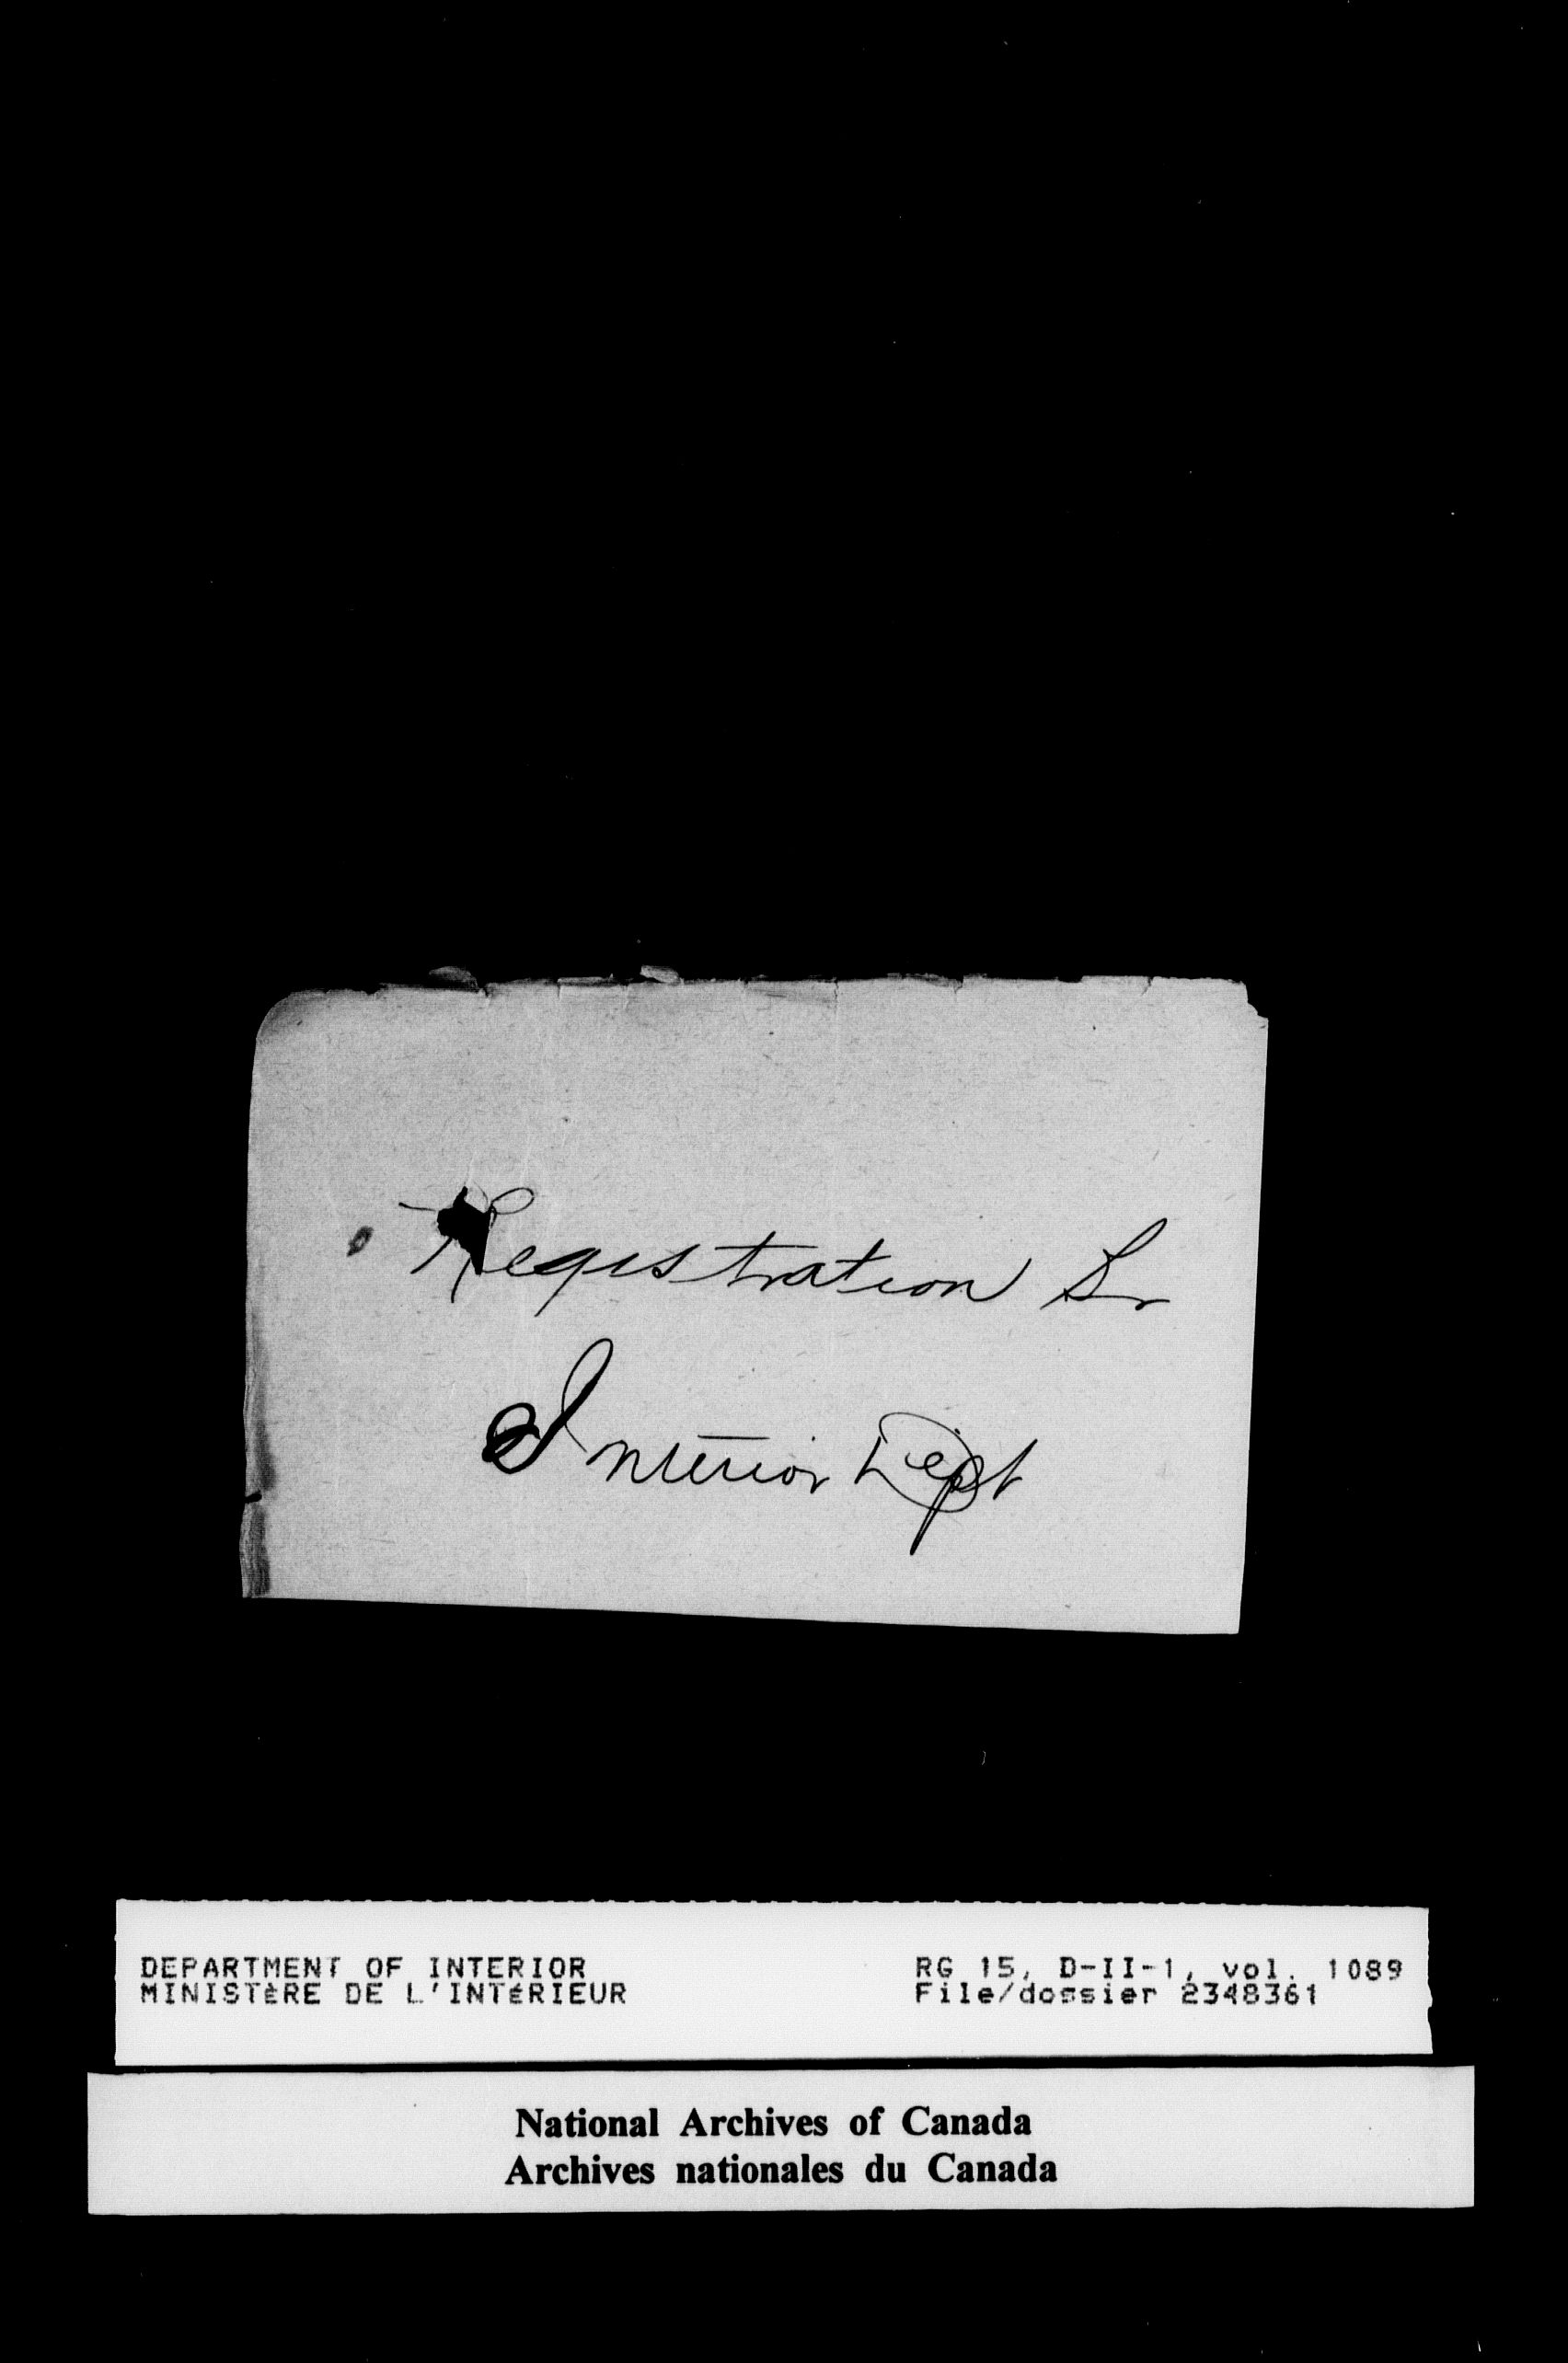 Registration Br
Interior Dept
DEPARTMENT OF INTERIOR
MINISTÈRE DE L'INTÉRIEUR
RG 15, D-II-1, vol. 1089
File/dossier 2348361
National Archives of Canada
Archives nationales du Canada